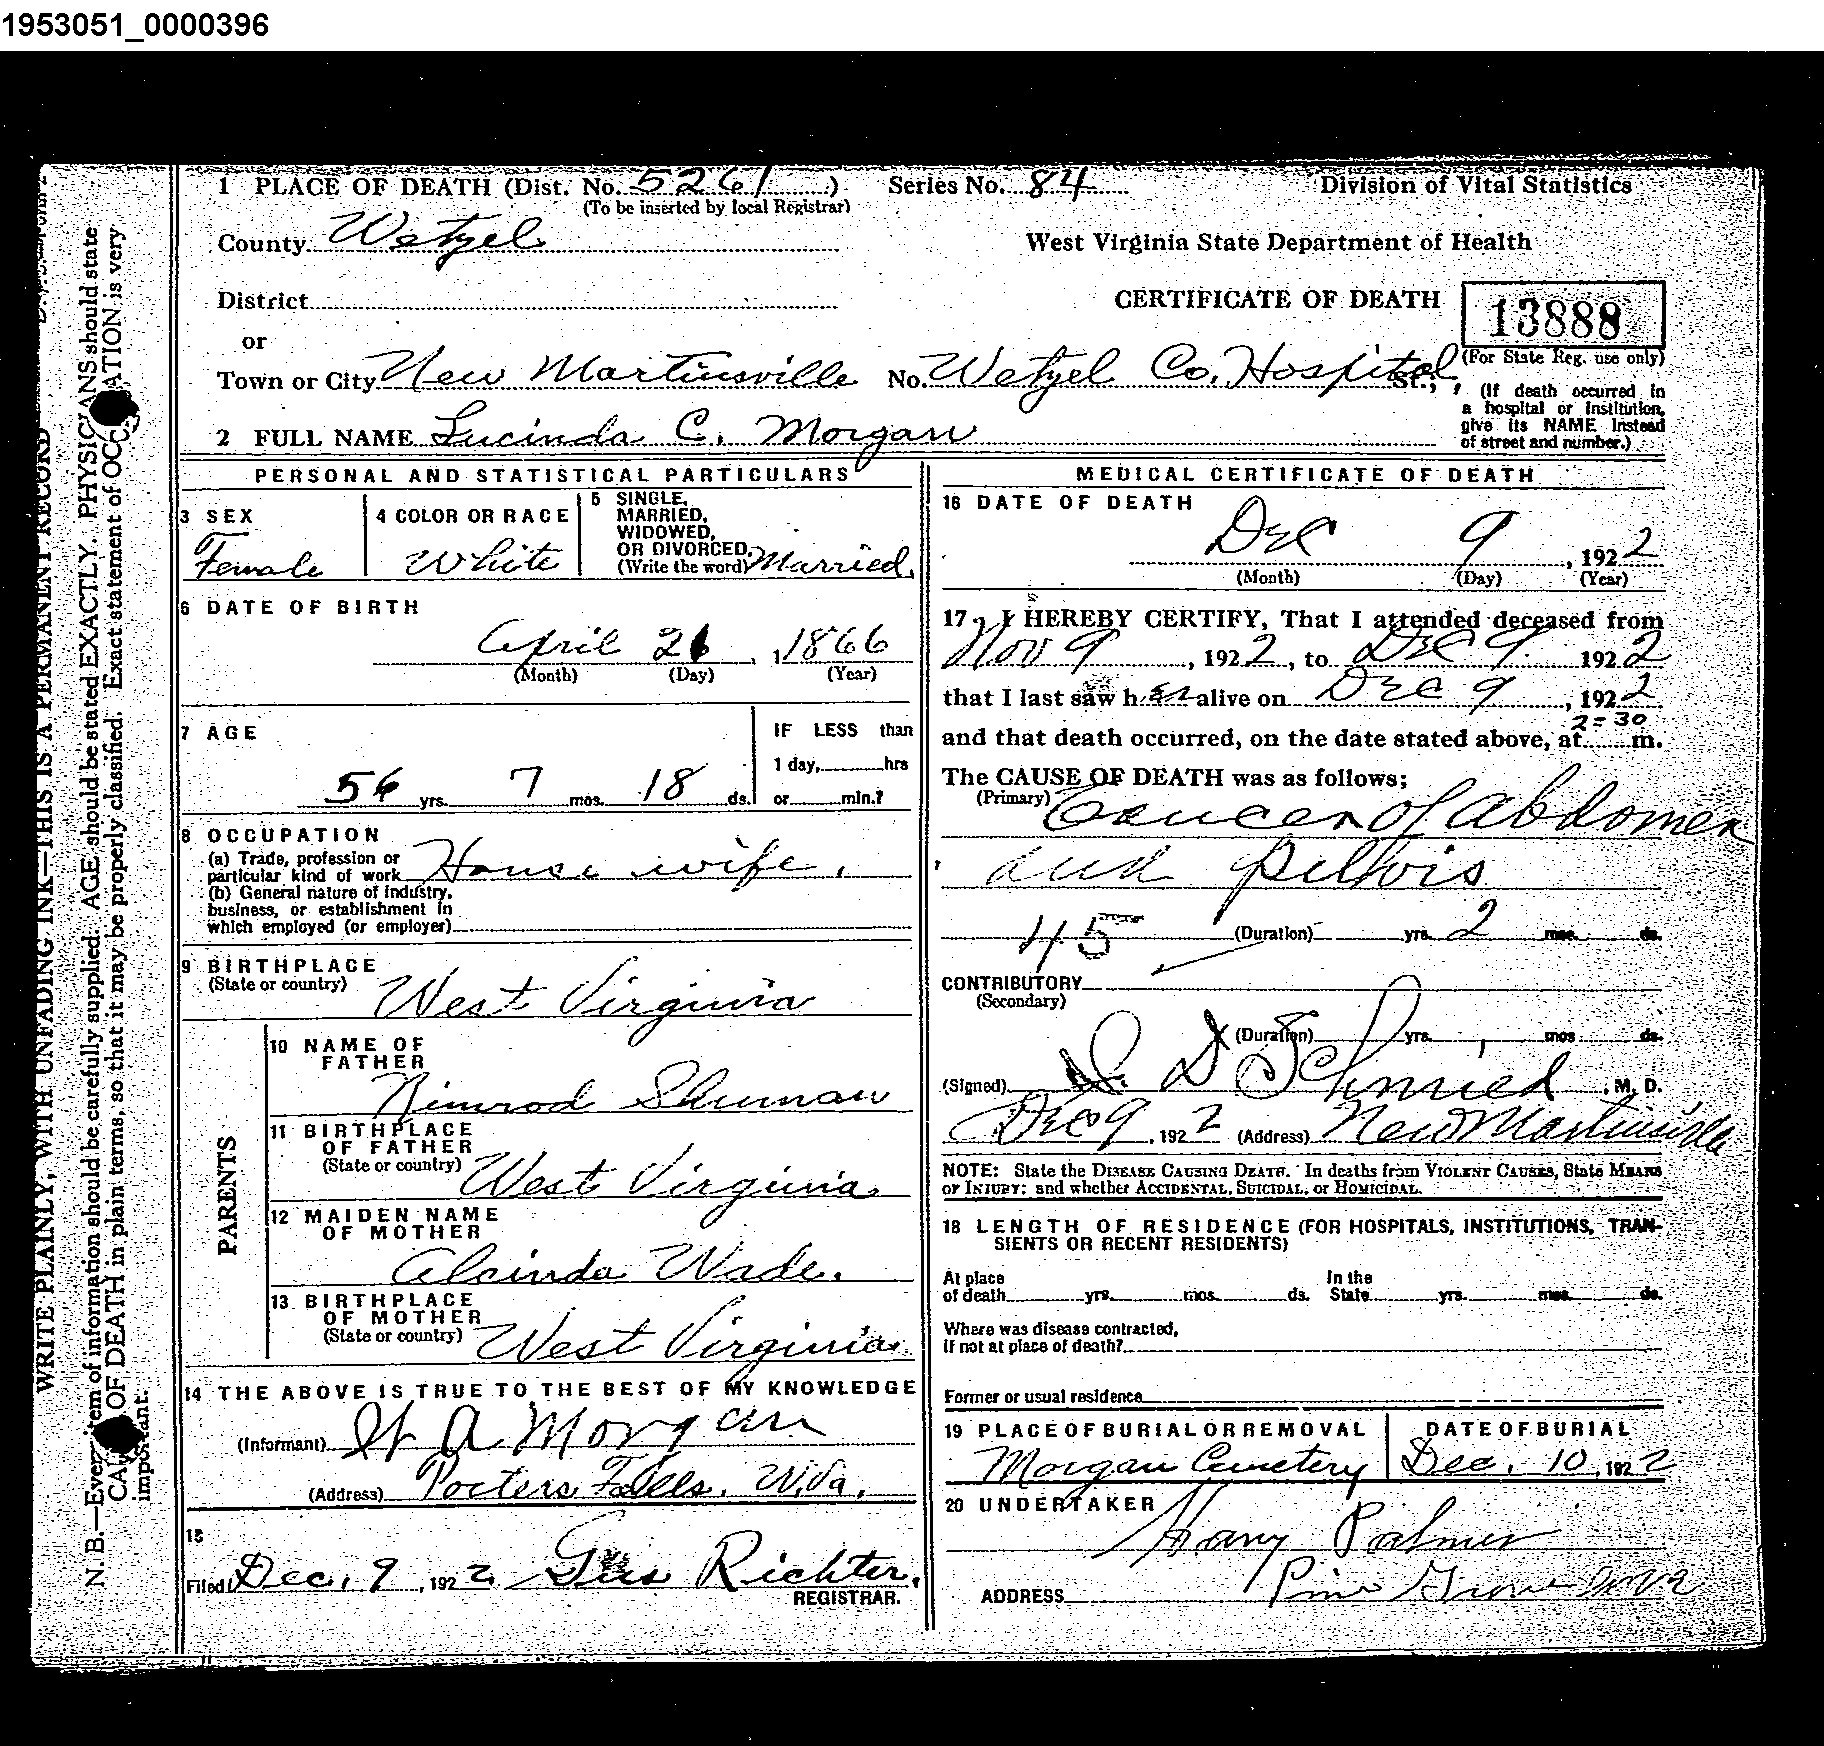 1953051_0000396
1 PLACE OF DEATH (Dist. No. 5261) Series No. 84 Division of Vital Statistics
(To be inserted by local Registrar)
County Wetzel West Virginia State Department of Health
District CERTIFICATE OF DEATH 13888
or
(For State Reg. use only)
Town or City New Martinsville No. Wetzel Co. Hospital St.,
(If death occurred in
a hospital or institution,
give its NAME instead
of street and number.)
2 FULL NAME Lucinda C. Morgan
PERSONAL AND STATISTICAL PARTICULARS
3 SEX
Female
4 COLOR OR RACE
White
5 SINGLE,
MARRIED,
WIDOWED,
OR DIVORCED.
(Write the word) Married
6 DATE OF BIRTH
April 21, 1866
(Month) (Day) (Year)
7 AGE
56 yrs. 7 mos. 18 ds.
IF LESS than
1 day, hrs
or min.?
8 OCCUPATION
(a) Trade, profession or
particular kind of work House wife.
(b) General nature of industry,
business, or establishment in
which employed (or employer)
9 BIRTHPLACE
(State or country) West Virginia
PARENTS
10 NAME OF
FATHER
Nimrod Shuman
11 BIRTHPLACE
OF FATHER
(State or country) West Virginia
12 MAIDEN NAME
OF MOTHER
Alcinda Wade.
13 BIRTHPLACE
OF MOTHER
(State or country) West Virginia
14 THE ABOVE IS TRUE TO THE BEST OF MY KNOWLEDGE
(Informant) A Morgan
(Address) Porters Falls, W.Va.
15
Filed Dec. 9, 1922 Gus Richter,
REGISTRAR.
MEDICAL CERTIFICATE OF DEATH
16 DATE OF DEATH
Dec 9, 1922
(Month) (Day) (Year)
17 I HEREBY CERTIFY, That I attended deceased from
Nov 9, 1922, to Dec 9. 1922
that I last saw her alive on Dec 9, 1922
2=30
and that death occurred, on the date stated above, at m.
The CAUSE OF DEATH was as follows;
(Primary) Cancer of Abdomen
and Pelvis
45 (Duration) yrs. 2 mos. ds.
CONTRIBUTORY
(Secondary)
(Duration) yrs. mos ds.
(Signed) D Schmied, M. D.
Dec 9, 1922 (Address) New Martinsville
NOTE: State the DISEASE CAUSING DEATH. In deaths from VIOLENT CAUSES, State MEANS
OF INJURY; and whether ACCIDENTAL, SUICIDAL, or HOMICIDAL.
18 LENGTH OF RESIDENCE (FOR HOSPITALS, INSTITUTIONS, TRAN-
SIENTS OR RECENT RESIDENTS)
At place
of death yrs. mos. ds.
In the
State yrs. mos. ds.
Where was disease contracted,
if not at place of death?
Former or usual residence
19 PLACE OF BURIAL OR REMOVAL
Morgan Cemetery
DATE OF BURIAL
Dec. 10, 1922
20 UNDERTAKER
Harry Palmer
ADDRESS Pine Grove W Va
WRITE PLAINLY, WITH UNFADING INK—THIS IS A PERMANENT RECORD
N. B.—Every item of information should be carefully supplied. AGE should be stated EXACTLY. PHYSICIANS should state
CAUSE OF DEATH in plain terms, so that it may be properly classified. Exact statement of OCCUPATION is very
important.